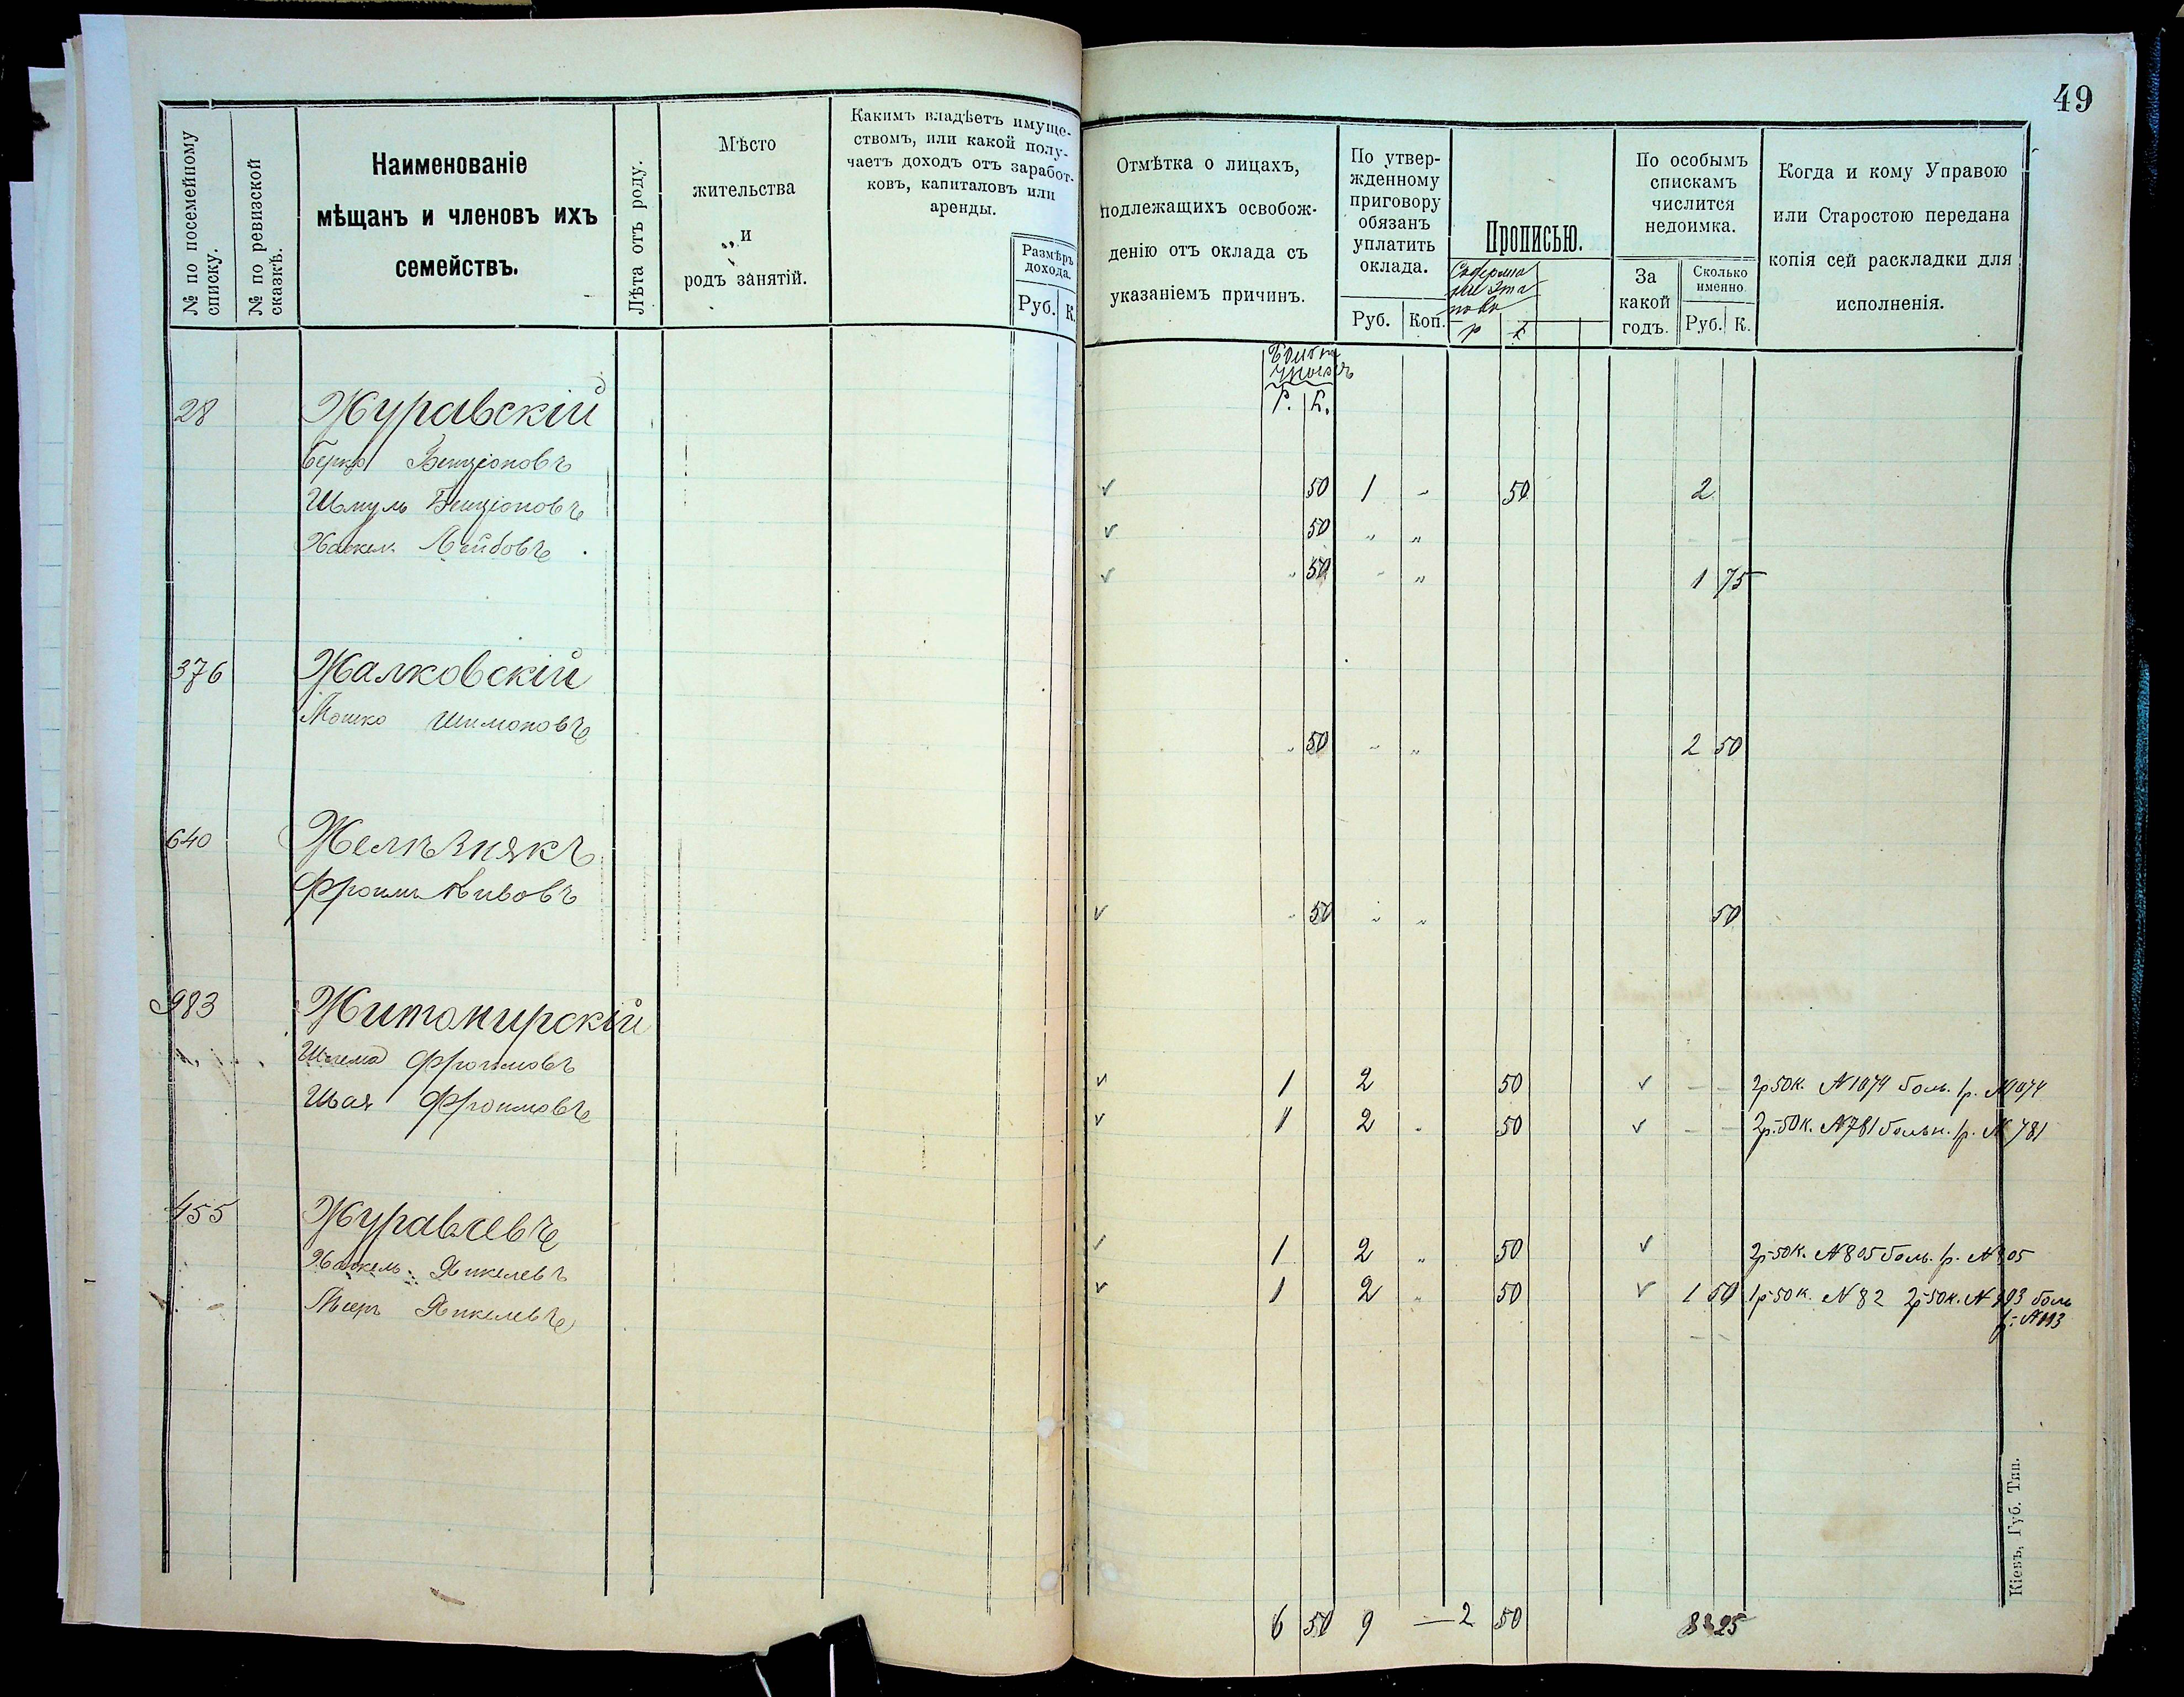 49
№ по посемейному списку.
№ по ревизской сказкѣ.
Наименованіе
мѣщанъ и членовъ ихъ
семействъ.
Лѣта отъ роду.
Мѣсто
жительства
и
родъ занятій.
Какимъ владѣетъ имуще-
ствомъ, или какой полу-
чаетъ доходъ отъ заработ-
ковъ, капиталовъ или
аренды.
Размѣръ
дохода.
Руб. К.
Отмѣтка о лицахъ,
подлежащихъ освобож-
денію отъ оклада съ
указаніемъ причинъ.
По утвер-
жденному
приговору
обязанъ
уплатить
оклада.
Руб. Коп.
Прописью.
р к
По особымъ
спискамъ
числится
недоимка.
За
какой
годъ.
Сколько
именно
Руб. К.
Когда и кому Управою
или Старостою передана
копія сей раскладки для
исполненія.
Р. К.
28 Журавскій
Берко Бенціоновъ 50 1 " 50 2
Шмуль Бенціоновъ 50 " "
Хаскель Лейбовъ " 50 " " 1 75
376 Жалковскій
Мошко Шимоновъ " 50 " " 2 50
640 Желѣзнякъ
Фроимъ Акивовъ " 50 " " 50
983 Житомирскій
Шлема Фроимовъ 1 2 50 2р 50к. №1074 боль. 1р. №1074
Шая Фроимовъ 1 2 " 50 2р.50к. №781 больн. 1р. №781
455 Журавлевъ
Хаскель Янкелевъ 1 2 " 50 2р-50к. №805 боль. 1р. №805
Мееръ Янкелевъ 1 2 " 50 1 50 1р-50к. №82 2р-50к. №893 боль
6 50 9 — 2 50 8 25
Кіевъ, Губ. Тип.